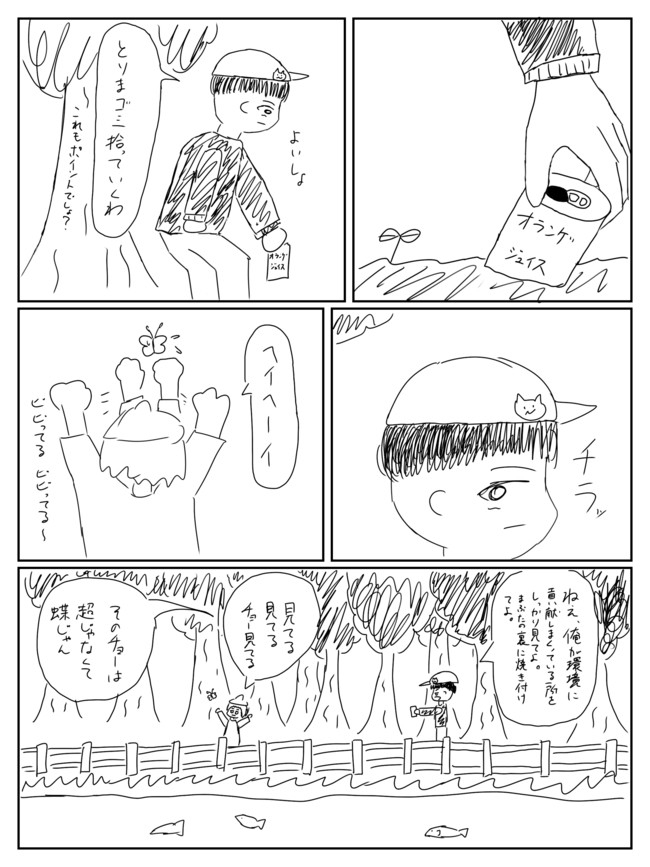 オランゲ
ジュイス
よいしょ
とりまゴミ拾っていくわ
これもポイントでしょ?
オランゲ
ジュイス
チラッ
ヘイヘーイ
ビビってる ビビってる〜
ねえ、俺が環境に
貢献しまくっている所を
しっかり見てよ。
まぶたの裏に焼き付け
てよ。
見てる
見てる
チョー見てる
そのチョーは
超じゃなくて
蝶じゃん